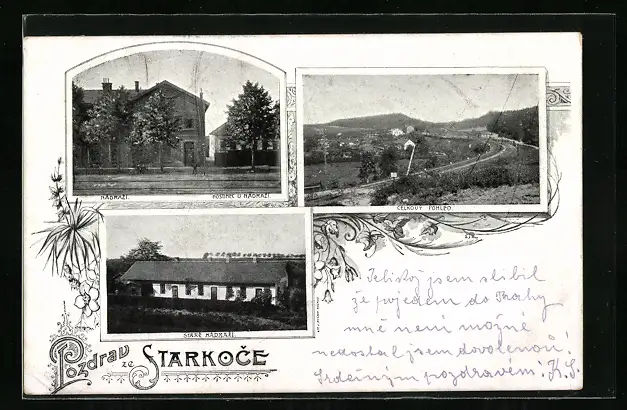 NÁDRAŽÍ.
HOSTINEC U NÁDRAŽÍ.
CELKOVÝ POHLED.
STARÉ NÁDRAŽÍ.
Pozdrav
ze STARKOČE
jsem slíbil
že pojedem do Prahy
mně není možné
nedostal jsem dovolenou!
Srdečným pozdravem! K.S.